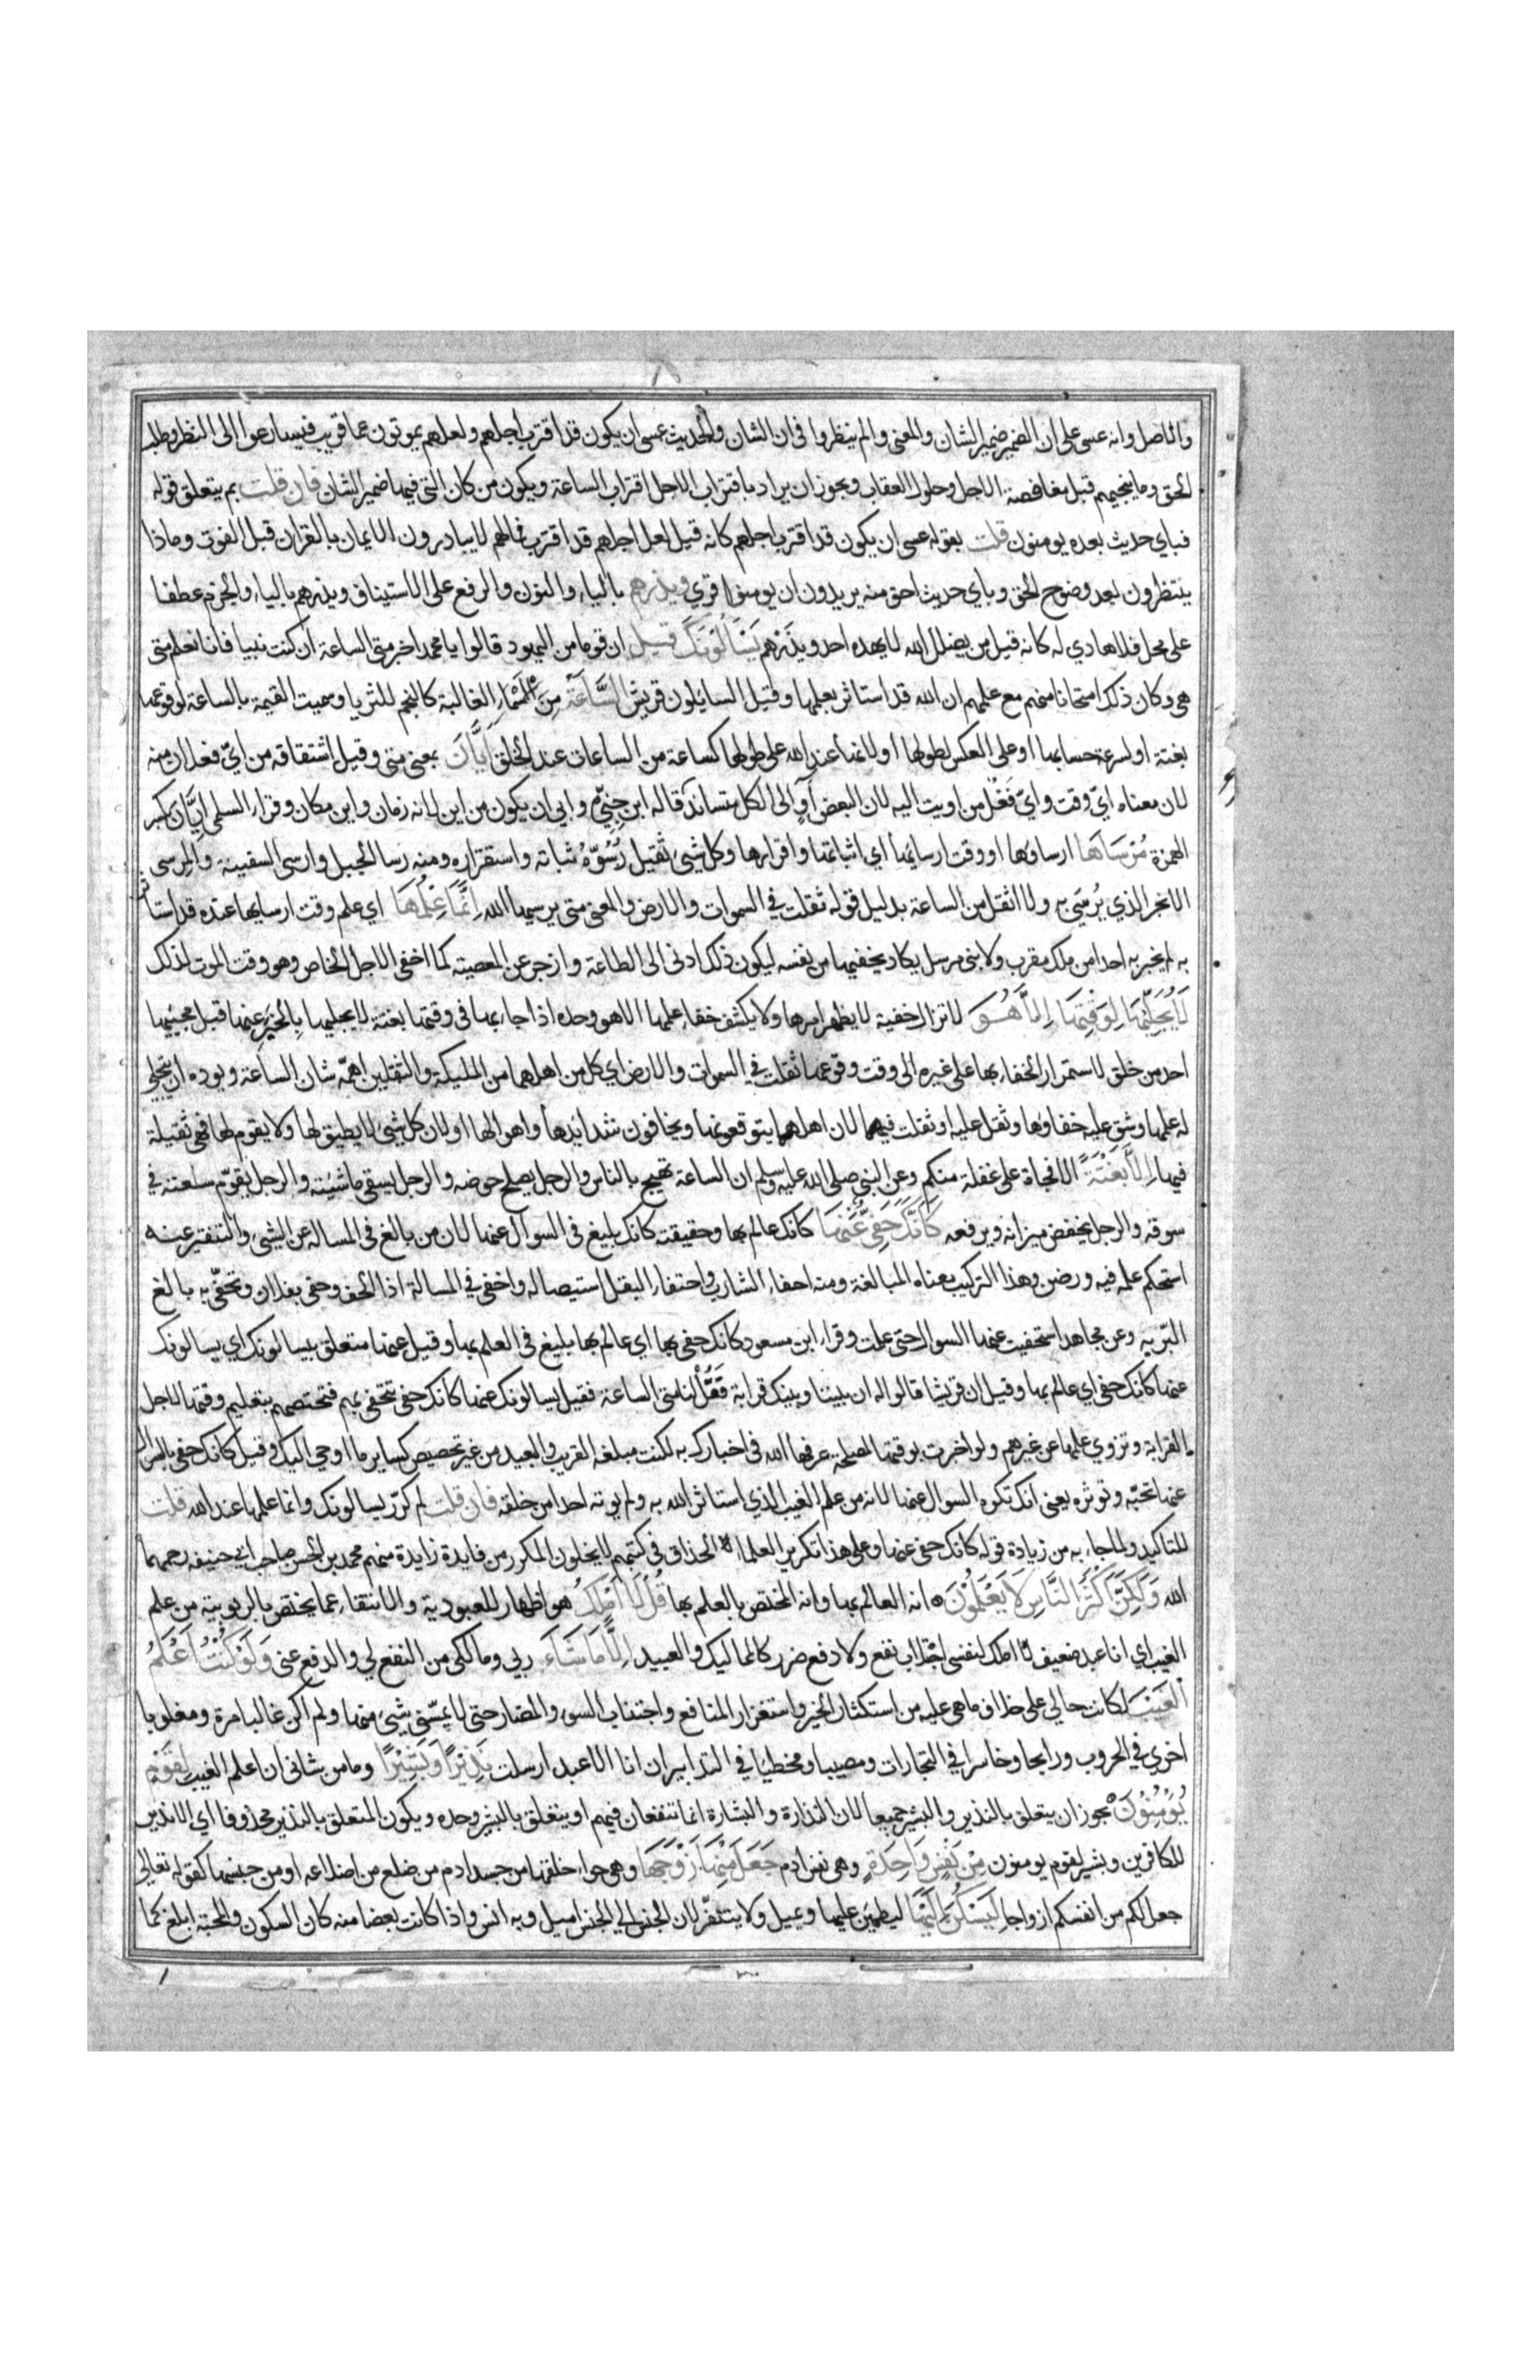 والاصل وانه عسى على ان الضمير ضمير الشان والمعنى والم ينظروا في ان الشان والحديث عسى ان يكون قد اقترب اجلهم ولعلهم يموتون عما قريب فيسارعوا الى النظر وطلب
الحق وما ينجيهم قبل مغافصة الاجل وحلول العقاب ويجوز ان يراد باقتراب الاجل اقتراب الساعة ويكون من كان التي فيها ضمير الشان فان قلت بم يتعلق قوله
فباي حديث بعده يومنون قلت بقوله عسى ان يكون قد اقترب اجلهم كانه قيل لعل اجلهم قد اقترب فمالهم لا يبادرون الايمان بالقران قبل الفوت وماذا
ينتظرون بعد وضوح الحق وباي حديث احق منه يريدون ان يومنوا قري ويذرهم بالياء والنون والرفع على الاستيناف ويذرهم بالياء والجزم عطفا
على محل فلا هادي له كانه قيل من يضلل الله لا يهده احد ويذرهم يَسْاَلُوْنَكَ قيل ان قوما من اليهود قالوا يا محمد اخبر متى الساعة ان كنت نبيا فانا نعلم متى
هي وكان ذلك امتحانا منهم مع علمهم ان الله قد استاثر بعلمها وقيل السايلون قريش السَّاعَةَ مِنَ الاسْمَاءِ الغالبة كالنجم للثريا وسميت القيمة بالساعة لوقوعها
بغتة او لسرعة حسابها او على العكس لطولها او لانها عند الله على طولها كساعة من الساعات عند الخلق اَيَّانَ بمعنى متى وقيل اشتقاقه من ايّ فعلان منه
لان معناه ايّ وقت وايّ فَعْل من اويت اليه لان البعض آوٍ الى الكل متساند قاله ابن جِنِّي وابي ان يكون من اين لانه زمان واين مكان وقراء السلمي اِيَّانَ بكسر
الهمزة مُرْسَاهَا ارساوها او وقت ارسايها أي اثباتها واقرارها وكل شيئ ثقيل رُسُوّهُ ثباته واستقراره ومنه رسا الجبل وارسى السفينة والمرسى
الانجر الذي يُرْسَي به ولا اثقل من الساعة بدليل قوله ثقلت في السموات والارض والمعنى متى يرسيها الله اِنَّمَا عِلْمُهَا اي علم وقت ارسايها عنده قد استا
به لم يخبر به احدا من ملك مقرب ولا نبى مرسل يكاد يخفيها من نفسه ليكون ذلك ادنى الى الطاعة وازجر عن المعصية كما اخفى الاجل الخاص وهو وقت الموت لذلك
لَا يُجَلِّيْهَا لِوَقْتِهَا اِلَّا هُوَ لا تزال خفية لا يظهر امرها ولا يكشف خفاء علمها الا هو وحده اذا جاء بها في وقتها بغتة لا يجليها بالخبر عنها قبل مجيئها
احد من خلق لاستمرار الخفاء بها على غيره الى وقت وقوعها ثقلت في السموات والارض اي كل من اهلهما من المليكة والثقلين اهمّه شان الساعة وبوده ان يتجلى
له علمها وشق عليه خفاوها وثقل عليه او ثقلت فيهما لان اهلهما يتوقعونها ويخافون شدايدها واهوالها او لان كل شيئ لا يطيق لها ولا يقوم لها فهي ثقيلة
فيهما اِلَّا بَغْتَةً الا فجاة على غفلة منكم وعن النبي صلى الله عليه وسلم ان الساعة تهيج بالناس والرجل يصلح حوضه والرجل يسقى ماشيته والرجل يقوّم سلعته في
سوقه والرجل يخفض ميزانه ويرفعه كَاَنَّكَ حَفِيٌّ عَنْهَا كانك عالم بها وحقيقته كانك بليغ في السوال عنها لان من بالغ في المساله عن الشيئ والتنقير عنه
استحكم علمه فيه ورصن وهذا التركيب معناه المبالغة ومنه احفاء الشارب واحتفاء البقل استيصاله واحفى في المسالة اذا الحف وحفى بفلان وتحفّي به بالغ
البرّ به وعن مجاهد استحفيت عنها السوال حتى علمت وقراء ابن مسعود كانك حفى بها اي عالم بها بليغ في العلم بها وقيل عنها متعلق بيسالونك اي يسالونك
عنها كانك حفى اي عالم بها وقيل ان قريشا قالوا له ان بيننا وبينك قرابة فَقُلْ لنا متى الساعة فقيل يسالونك عنها كانك حفى تتحفى بهم فتختصهم بتعليم وقتها لاجل
القرابة وتزوي علمها عن غيرهم ولو اخبرت بوقتها لمصلحة عرفها الله في اخبارك به لكنت مبلغه القريب والبعيد من غير تخصيص كساير ما اوحي اليك وقيل كانك حفى بالسوال
عنها تحبّه وتوثره يعني انك تكره السوال عنها لانه من علم الغيب الذي استاثر الله به ولم يوته احدا من خلقه فان قلت لم كرّر يسالونك وانما علمها عند الله قلت
للتاكيد ولما جاء به من زيادة قوله كانك حفى عنها وعلى هذا تكرير العلماء الحذاق في كتبهم لا يخلون المكرر من فايدة زايدة منهم محمد بن الحسن صاحب ابي حنيفه رحمهما
الله وَلَكِنَّ اَكْثَرَ النَّاسِ لَا يَعْلَمُوْنَ انه العالم بها وانه المختص بالعلم بها قُلْ لَا اَمْلِكُ هو اظهار للعبودية والانتفاء عما يختص بالربوبية من علم
الغيب اي انا عبد ضعيف لا املك لنفسى اجتلاب نفع ولا دفع ضرر كالمماليك والعبيد اِلَّا مَا شَاءَ ربي ومالكى من النفع لي والدفع عنى وَلَوْ كُنْتُ اَعْلَمُ
الْغَيْبَ لكانت حالي على خلاف ما هي عليه من استكثار الخير واستغزار المنافع واجتناب السوء والمضار حتى لا يمسّنى شيئ منها ولم اكن غالبا مرة ومغلوبا
اخرى في الحروب ورابحا وخاسرا في التجارات ومصيبا ومخطيا في التدابير ان انا الا عبد ارسلت نَذِيْرًا وَبَشِيْرًا وما من شانى ان اعلم الغيب لِقَوْمٍ
يُوْمِنُوْنَ يجوز ان يتعلق بالنذير والبشير جميعا لان النذارة والبشارة انما تنفعان فيهم او يتعلق بالبشير وحده ويكون المتعلق بالنذير محذوفا اي الا نذير
للكافرين وبشير لقوم يومنون مِنْ نَفْسٍ وَاحِدَةٍ وهي نفس ادم جَعَلَ مِنْهَا زَوْجَهَا وهي حواء خلقها من جسد ادم من ضلع من اضلاعه او من جنسها كقوله تعالى
جعل لكم من انفسكم ازواجا لِيَسْكُنَ اِلَيْهَا ليطمئن عليها ويميل ولا يتنفر لان الجنس الى الجنس اميل وبه انس واذا كانت بعضا منه كان السكون والمحبة ابلغ كما